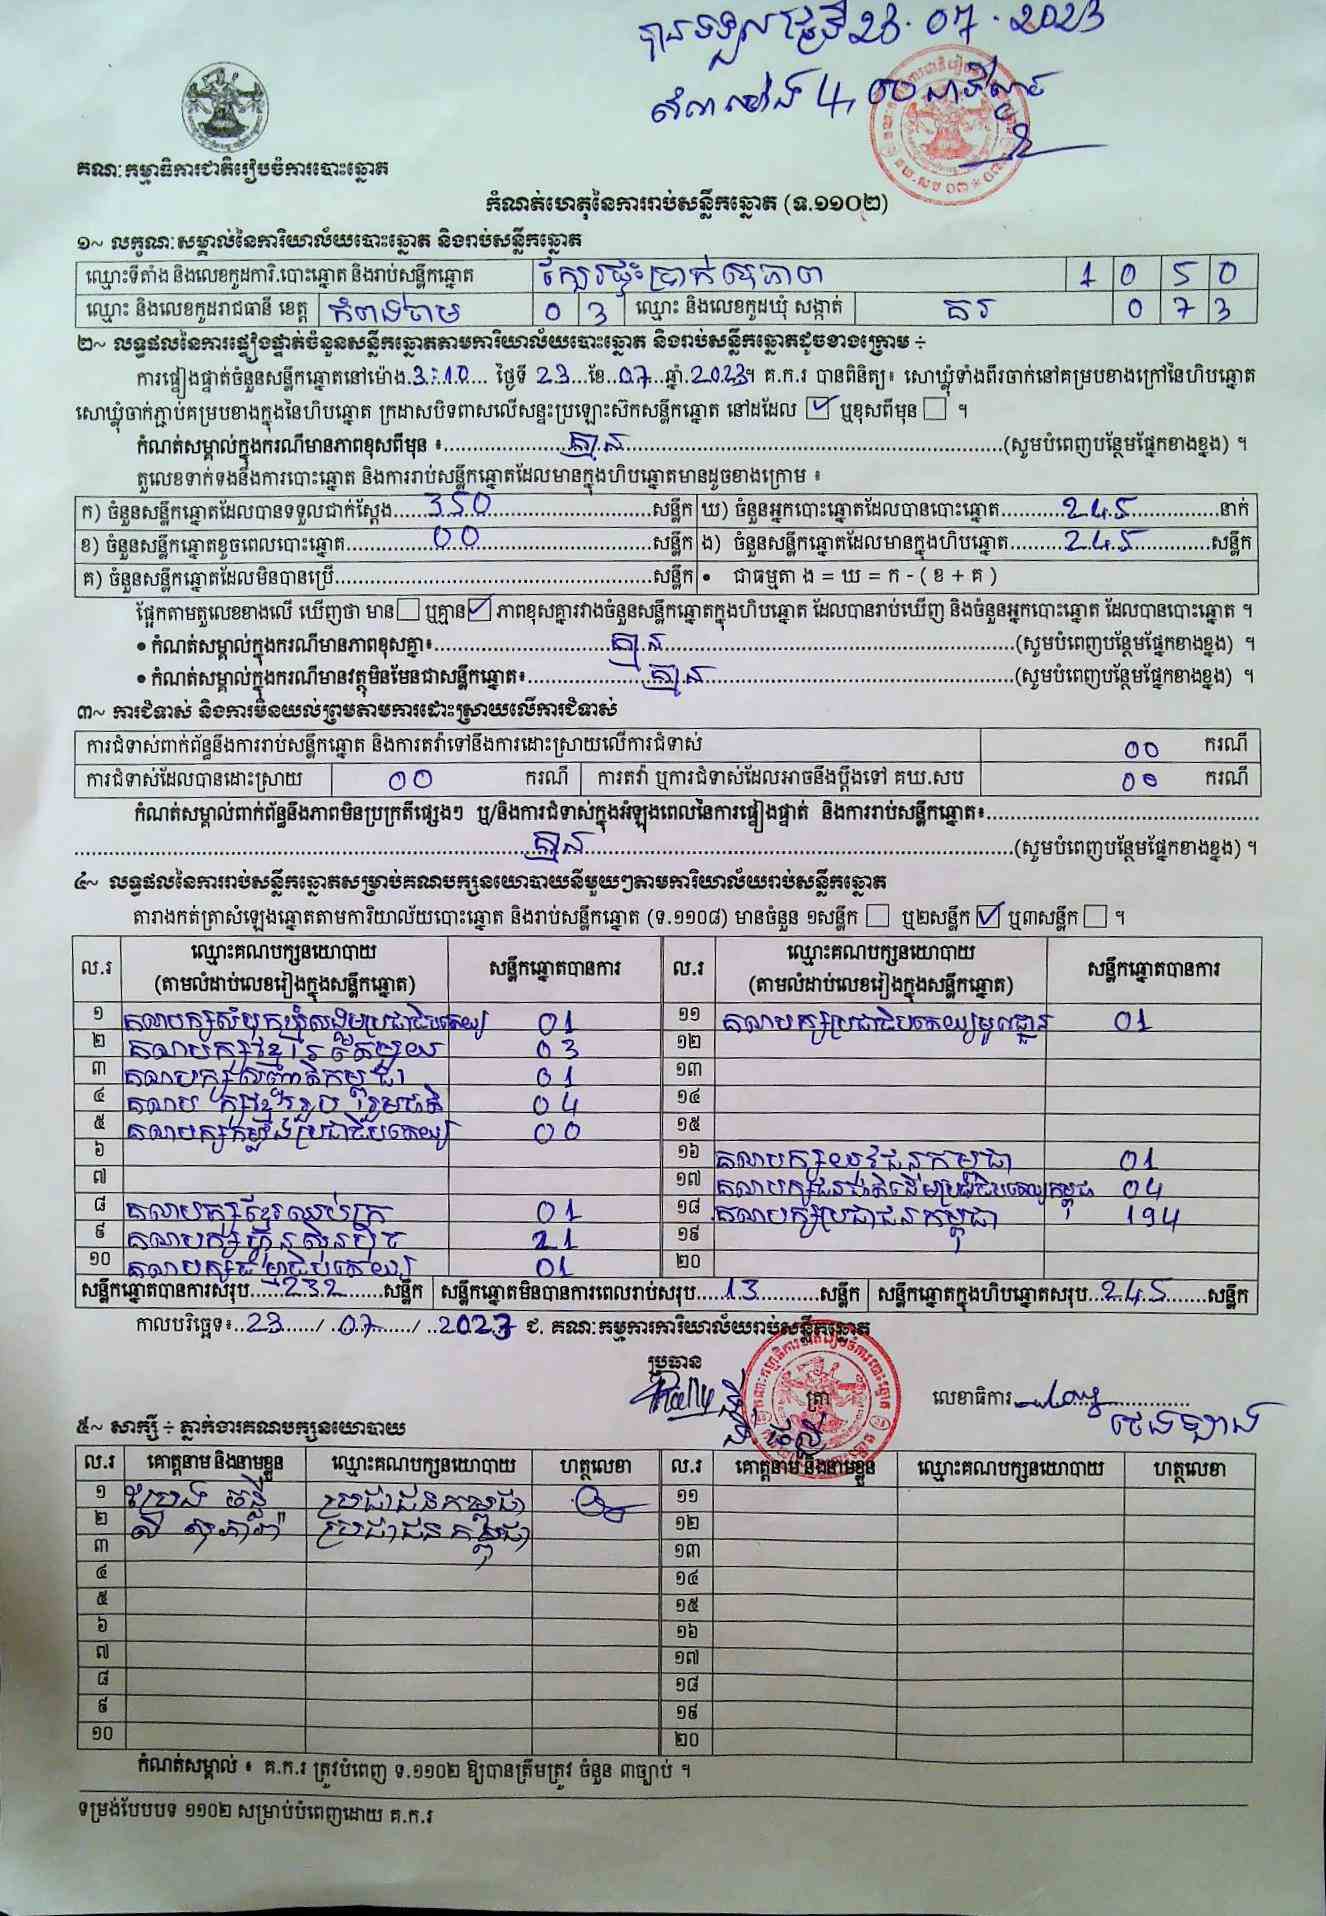 បានទទួលថ្ងៃទី 23.07.2023
វេលាម៉ោង 4,00 នាទីល្ងាច
គណៈកម្មាធិការជាតិរៀបចំការបោះឆ្នោត
កំណត់ហេតុនៃការរាប់សន្លឹកឆ្នោត (ទ.១១០២)
១~ លក្ខណៈសម្គាល់នៃការិយាល័យបោះឆ្នោត និងរាប់សន្លឹកឆ្នោត
ឈ្មោះទីតាំង និងលេខកូដការិ.បោះឆ្នោត និងរាប់សន្លឹកឆ្នោត 1 0 5 0
ឈ្មោះ និងលេខកូដរាជធានី ខេត្ត កំពង់ចាម 0 3 ឈ្មោះ និងលេខកូដឃុំ សង្កាត់ គរ 0 7 3
២~ លទ្ធផលនៃការផ្ទៀងផ្ទាត់ចំនួនសន្លឹកឆ្នោតតាមការិយាល័យបោះឆ្នោត និងរាប់សន្លឹកឆ្នោតដូចខាងក្រោម ÷
ការផ្ទៀងផ្ទាត់ចំនួនសន្លឹកឆ្នោតនៅម៉ោង.3:10... ថ្ងៃទី 23...ខែ..07...ឆ្នាំ.2023។ គ.ក.រ បានពិនិត្យ៖ សោឃ្លុំទាំងពីរចាក់នៅគម្របខាងក្រៅនៃហិបឆ្នោត
សោឃ្លុំចាក់ភ្ជាប់គម្របខាងក្នុងនៃហិបឆ្នោត ក្រដាសបិទពាសលើសន្ទះប្រឡោះស៊កសន្លឹកឆ្នោត នៅដដែល ☑ ឬខុសពីមុន ☐ ។
កំណត់សម្គាល់ក្នុងករណីមានភាពខុសពីមុន ៖........គ្មាន........(សូមបំពេញបន្ថែមផ្នែកខាងខ្នង) ។
តួលេខទាក់ទងនឹងការបោះឆ្នោត និងការរាប់សន្លឹកឆ្នោតដែលមានក្នុងហិបឆ្នោតមានដូចខាងក្រោម ៖
ក) ចំនួនសន្លឹកឆ្នោតដែលបានទទួលជាក់ស្តែង......350......សន្លឹក ឃ) ចំនួនអ្នកបោះឆ្នោតដែលបានបោះឆ្នោត......245......នាក់
ខ) ចំនួនសន្លឹកឆ្នោតខូចពេលបោះឆ្នោត......00......សន្លឹក ង) ចំនួនសន្លឹកឆ្នោតដែលមានក្នុងហិបឆ្នោត......245......សន្លឹក
គ) ចំនួនសន្លឹកឆ្នោតដែលមិនបានប្រើ............សន្លឹក • ជាធម្មតា ង = ឃ = ក - ( ខ + គ )
ផ្អែកតាមតួលេខខាងលើ ឃើញថា មាន ☐ ឬគ្មាន ☑ ភាពខុសគ្នារវាងចំនួនសន្លឹកឆ្នោតក្នុងហិបឆ្នោត ដែលបានរាប់ឃើញ និងចំនួនអ្នកបោះឆ្នោត ដែលបានបោះឆ្នោត ។
• កំណត់សម្គាល់ក្នុងករណីមានភាពខុសគ្នា៖........គ្មាន........(សូមបំពេញបន្ថែមផ្នែកខាងខ្នង) ។
• កំណត់សម្គាល់ក្នុងករណីមានវត្ថុមិនមែនជាសន្លឹកឆ្នោត៖........គ្មាន........(សូមបំពេញបន្ថែមផ្នែកខាងខ្នង) ។
៣~ ការជំទាស់ និងការមិនយល់ព្រមតាមការដោះស្រាយលើការជំទាស់
ការជំទាស់ពាក់ព័ន្ធនឹងការរាប់សន្លឹកឆ្នោត និងការតវ៉ាទៅនឹងការដោះស្រាយលើការជំទាស់ 00 ករណី
ការជំទាស់ដែលបានដោះស្រាយ 00 ករណី ការតវ៉ា ឬការជំទាស់ដែលអាចនឹងប្តឹងទៅ គឃ.សប 00 ករណី
កំណត់សម្គាល់ពាក់ព័ន្ធនឹងភាពមិនប្រក្រតីផ្សេងៗ ឬ/និងការជំទាស់ក្នុងអំឡុងពេលនៃការផ្ទៀងផ្ទាត់ និងការរាប់សន្លឹកឆ្នោត៖........
........គ្មាន........(សូមបំពេញបន្ថែមផ្នែកខាងខ្នង) ។
៤~ លទ្ធផលនៃការរាប់សន្លឹកឆ្នោតសម្រាប់គណបក្សនយោបាយនីមួយៗតាមការិយាល័យរាប់សន្លឹកឆ្នោត
តារាងកត់ត្រាសំឡេងឆ្នោតតាមការិយាល័យបោះឆ្នោត និងរាប់សន្លឹកឆ្នោត (ទ.១១០៨) មានចំនួន ១សន្លឹក ☐ ឬ២សន្លឹក ☑ ឬ៣សន្លឹក ☐ ។
ល.រ ឈ្មោះគណបក្សនយោបាយ (តាមលំដាប់លេខរៀងក្នុងសន្លឹកឆ្នោត) សន្លឹកឆ្នោតបានការ ល.រ ឈ្មោះគណបក្សនយោបាយ (តាមលំដាប់លេខរៀងក្នុងសន្លឹកឆ្នោត) សន្លឹកឆ្នោតបានការ
១ គណបក្សសំបុកឃ្មុំសង្គមប្រជាធិបតេយ្យ 01 ១១ គណបក្សប្រជាធិបតេយ្យមូលដ្ឋាន 01
២ គណបក្សខ្មែរតែមួយ 03 ១២
៣ គណបក្សសញ្ជាតិកម្ពុជា 01 ១៣
៤ គណបក្សខ្មែររួបរួមជាតិ 04 ១៤
៥ គណបក្សកម្លាំងប្រជាធិបតេយ្យ 00 ១៥
៦ ១៦ គណបក្សយុវជនកម្ពុជា 01
៧ ១៧ គណបក្សជនជាតិដើមប្រជាធិបតេយ្យកម្ពុជា 04
៨ គណបក្សខ្មែរឈប់ក្រ 01 ១៨ គណបក្សប្រជាជនកម្ពុជា 194
៩ គណបក្សហ្វ៊ុនស៊ិនប៉ិច 21 ១៩
១០ គណបក្សធម្មាធិបតេយ្យ 01 ២០
សន្លឹកឆ្នោតបានការសរុប......232......សន្លឹក សន្លឹកឆ្នោតមិនបានការពេលរាប់សរុប......13......សន្លឹក សន្លឹកឆ្នោតក្នុងហិបឆ្នោតសរុប...245......សន្លឹក
កាលបរិច្ឆេទ៖..23....../..07....../..2023 ជ. គណៈកម្មការការិយាល័យរាប់សន្លឹកឆ្នោត
ប្រធាន
ត្រា លេខាធិការ
៥~ សាក្សី ÷ ភ្នាក់ងារគណបក្សនយោបាយ
ល.រ គោត្តនាម និងនាមខ្លួន ឈ្មោះគណបក្សនយោបាយ ហត្ថលេខា ល.រ គោត្តនាម និងនាមខ្លួន ឈ្មោះគណបក្សនយោបាយ ហត្ថលេខា
១ ប្រជាជនកម្ពុជា ១១
២ ប្រជាជនកម្ពុជា ១២
៣ ១៣
៤ ១៤
៥ ១៥
៦ ១៦
៧ ១៧
៨ ១៨
៩ ១៩
១០ ២០
កំណត់សម្គាល់ ៖ គ.ក.រ ត្រូវបំពេញ ទ.១១០២ ឱ្យបានត្រឹមត្រូវ ចំនួន ៣ច្បាប់ ។
ទម្រង់បែបបទ ១១០២ សម្រាប់បំពេញដោយ គ.ក.រ